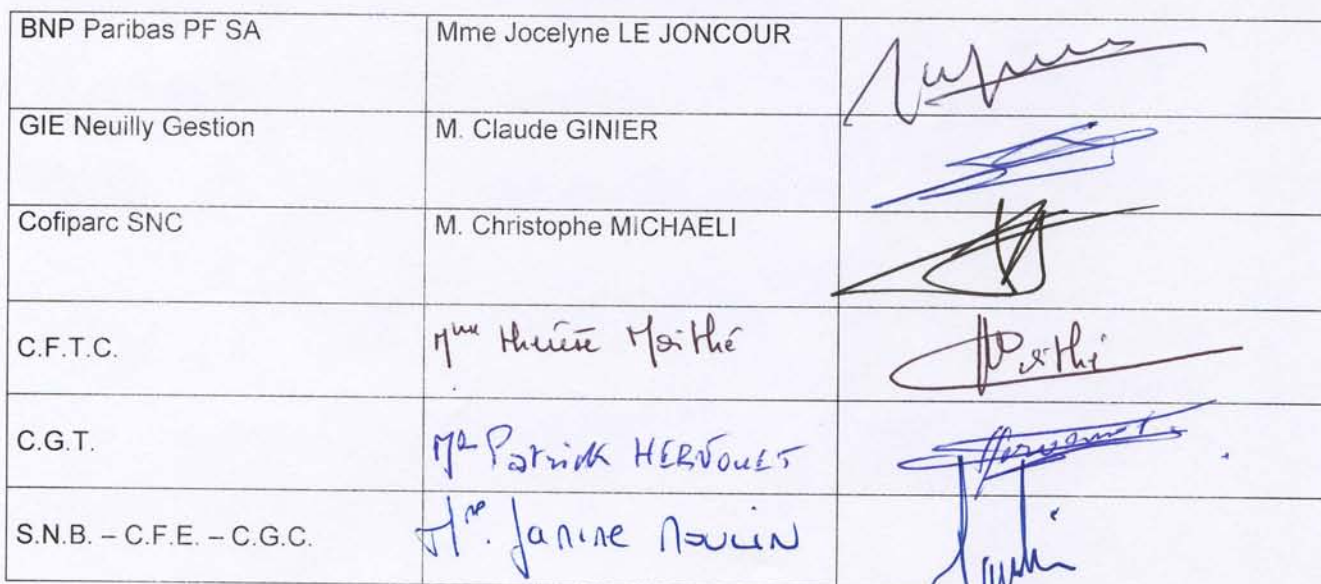 BNP Paribas PF SA Mme Jocelyne LE JONCOUR
GIE Neuilly Gestion M. Claude GINIER
Cofiparc SNC M. Christophe MICHAELI
C.F.T.C. Mme Maithé
C.G.T. Mr Patrick HERVOUET
S.N.B. – C.F.E. – C.G.C. Mme Janine MOULIN